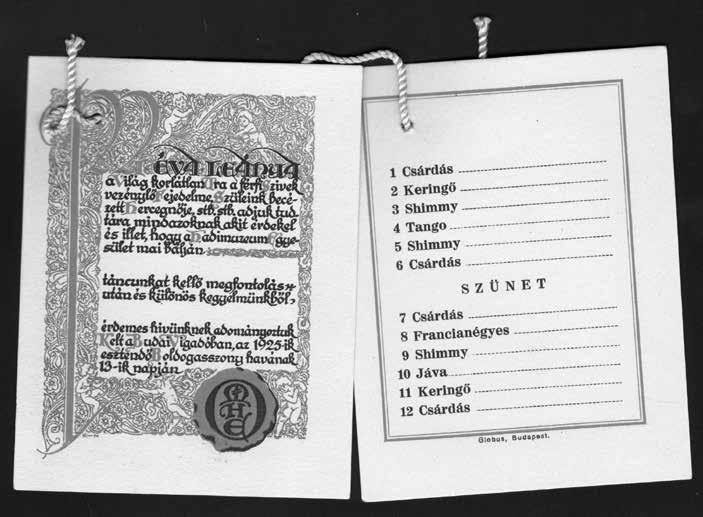 ÉVA LEÁNYA
a Világ korlátlan Ura a férfi Szivek
vezénylő Fejedelme, Szüleink becé-
zett Hercegnője, stb. stb. adjuk tud
tára mindazoknak akit érdekel
és illet, hogy a Hadimuzeum Egye-
sület mai bálján
táncunkat kellő megfontolás
után és különös kegyelmünkből,
érdemes hivünknek adományoztuk
Kelt a Budai Vigadóban, az 1925-ik
esztendő Boldogasszony havának
13-ik napján
1 Csárdás
2 Keringő
3 Shimmy
4 Tango
5 Shimmy
6 Csárdás
SZÜNET
7 Csárdás
8 Francianégyes
9 Shimmy
10 Jáva
11 Keringő
12 Csárdás
Globus, Budapest.